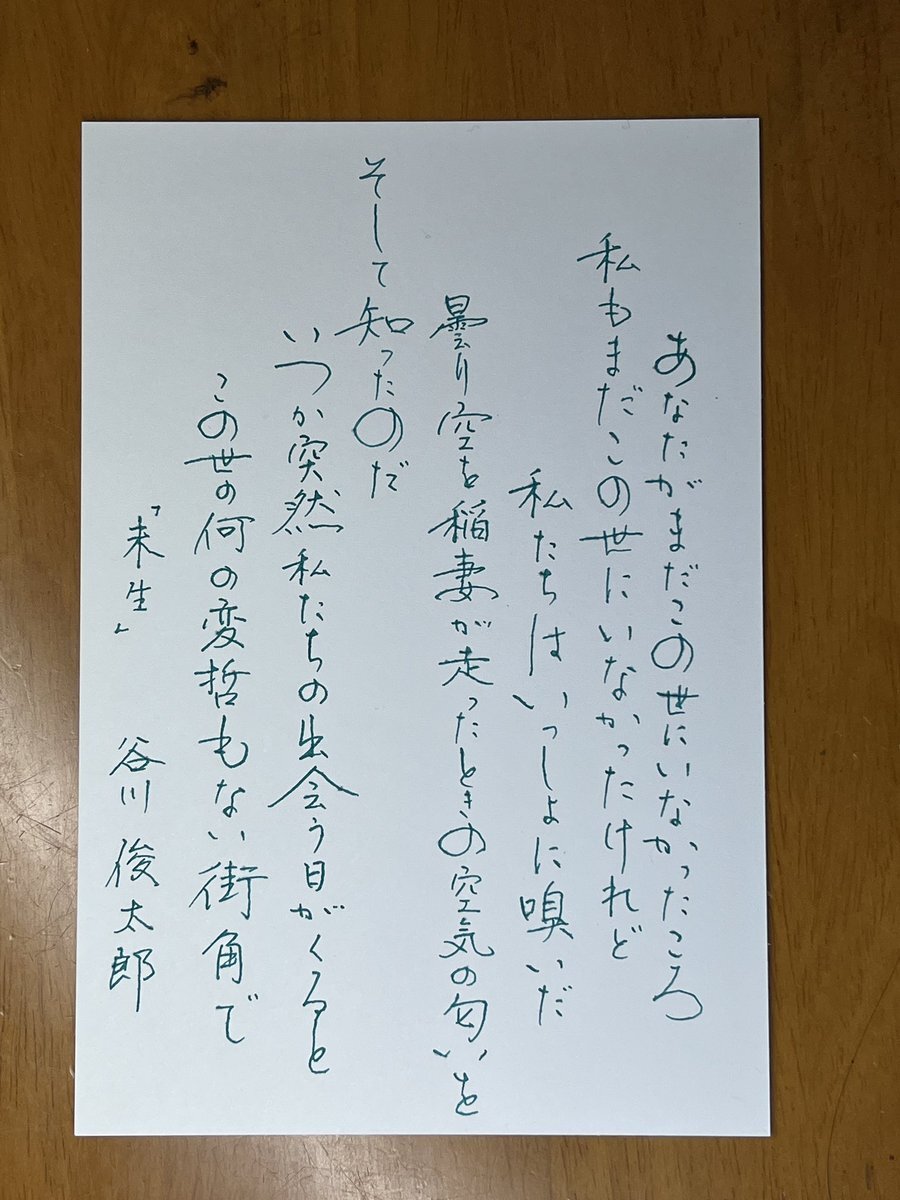 あなたがまだこの世にいなかったころ
私もまだこの世にいなかったけれど
私たちはいっしょに嗅いだ
曇り空を稲妻が走ったときの空気の匂いを
そして知ったのだ
いつか突然私たちの出会う日がくると
この世の何の変哲もない街角で
「未生」 谷川俊太郎